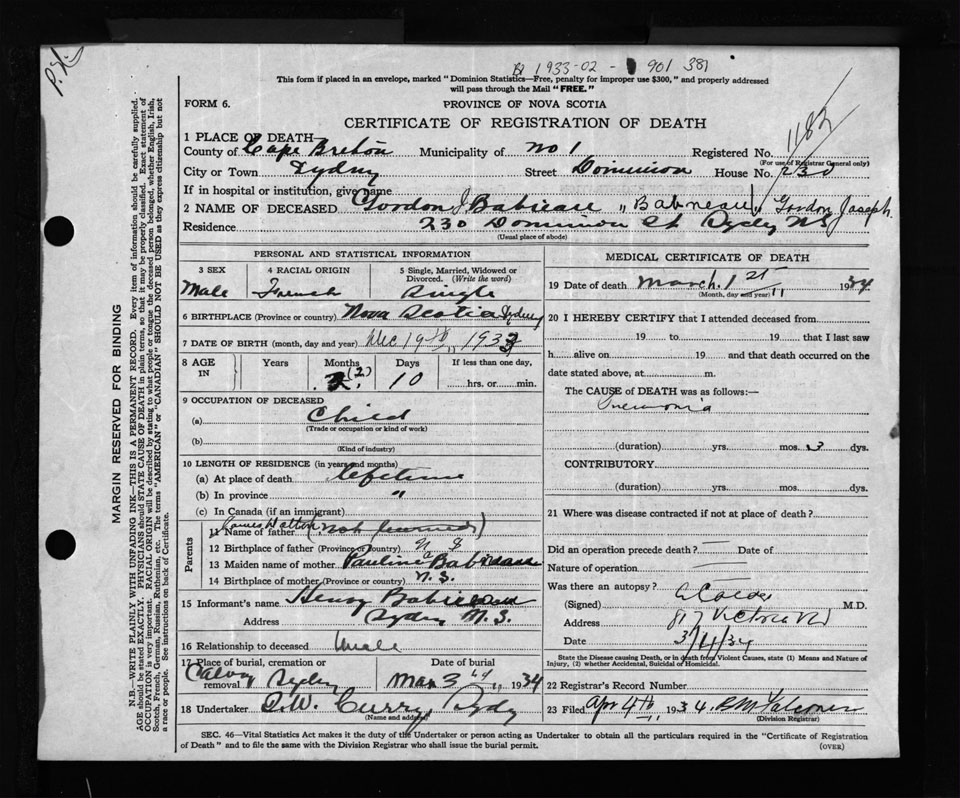 B 1933-02- 901 381
This form if placed in an envelope, marked "Dominion Statistics—Free, penalty for improper use $300," and properly addressed
will pass through the Mail "FREE."
FORM 6.
PROVINCE OF NOVA SCOTIA
CERTIFICATE OF REGISTRATION OF DEATH
1182
MARGIN RESERVED FOR BINDING
N.B.—WRITE PLAINLY WITH UNFADING INK—THIS IS A PERMANENT RECORD. Every item of information should be carefully supplied.
AGE should be stated EXACTLY. PHYSICIANS should STATE CAUSE OF DEATH in plain terms, so that it may be properly classified. Exact statement of
OCCUPATION is very important. RACIAL ORIGIN will be described by stating to what people or tongue the deceased person belonged, whether English, Irish,
Scotch, French, German, Russian, Ruthenian, etc. The terms "AMERICAN" or "CANADIAN" SHOULD NOT BE USED as they express citizenship but not
a race or people. See instructions on back of Certificate.
1 PLACE OF DEATH
County of Cape Breton Municipality of No 1 Registered No.
(For use of Registrar General only)
City or Town Sydney Street Dominion House No. 230
If in hospital or institution, give name
2 NAME OF DECEASED Gordon J. Babineau "Babineau" Gordon Joseph
Residence 230 Dominion St Sydney NS
(Usual place of abode)
PERSONAL AND STATISTICAL INFORMATION
3 SEX 4 RACIAL ORIGIN 5 Single, Married, Widowed or Divorced. (Write the word)
Male French Single
6 BIRTHPLACE (Province or country) Nova Scotia Sydney
7 DATE OF BIRTH (month, day and year) Dec 19th 1933
8 AGE IN Years Months Days If less than one day,
2 (2) 10 hrs. or min.
9 OCCUPATION OF DECEASED
(a) Child
(Trade or occupation or kind of work)
(b)
(Kind of industry)
10 LENGTH OF RESIDENCE (in years and months)
(a) At place of death lifetime
(b) In province "
(c) In Canada (if an immigrant)
Parents
11 Name of father James (not )
12 Birthplace of father (Province or country) N S
13 Maiden name of mother Pauline Babineau
14 Birthplace of mother (Province or country) N.S.
15 Informant's name Henry Babineau
Address Sydney N.S.
16 Relationship to deceased Uncle
17 Place of burial, cremation or removal Date of burial
Calvary Sydney Mar 3 1934
18 Undertaker Curry, Sydney
(Name and address)
MEDICAL CERTIFICATE OF DEATH
19 Date of death March 1st 1934
(Month, day and year)
20 I HEREBY CERTIFY that I attended deceased from
19 to 19 that I last saw
h alive on 19 and that death occurred on
date stated above, at m.
The CAUSE of DEATH was as follows:—
Pneumonia
(duration) yrs. mos. 3 dys.
CONTRIBUTORY
(duration) yrs. mos. dys.
21 Where was disease contracted if not at place of death?
Did an operation precede death? — Date of
Nature of operation —
Was there an autopsy? —
(Signed) M.D.
Address 817 Victoria Rd
Date 34
State the Disease causing Death, or in death from Violent Causes, state (1) Means and Nature of
Injury, (2) whether Accidental, Suicidal or Homicidal.
22 Registrar's Record Number
23 Filed Apr 4th 1934.
(Division Registrar)
SEC. 46—Vital Statistics Act makes it the duty of the Undertaker or person acting as Undertaker to obtain all the particulars required in the "Certificate of Registration
of Death" and to file the same with the Division Registrar who shall issue the burial permit. (OVER)